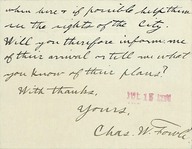 when here & if possible, help them
see the sights of the City.
Will you therefore inform me
of their arrival or tell me what
you know of their plans?
With thanks,
Yours,
Chas. W. Fowle